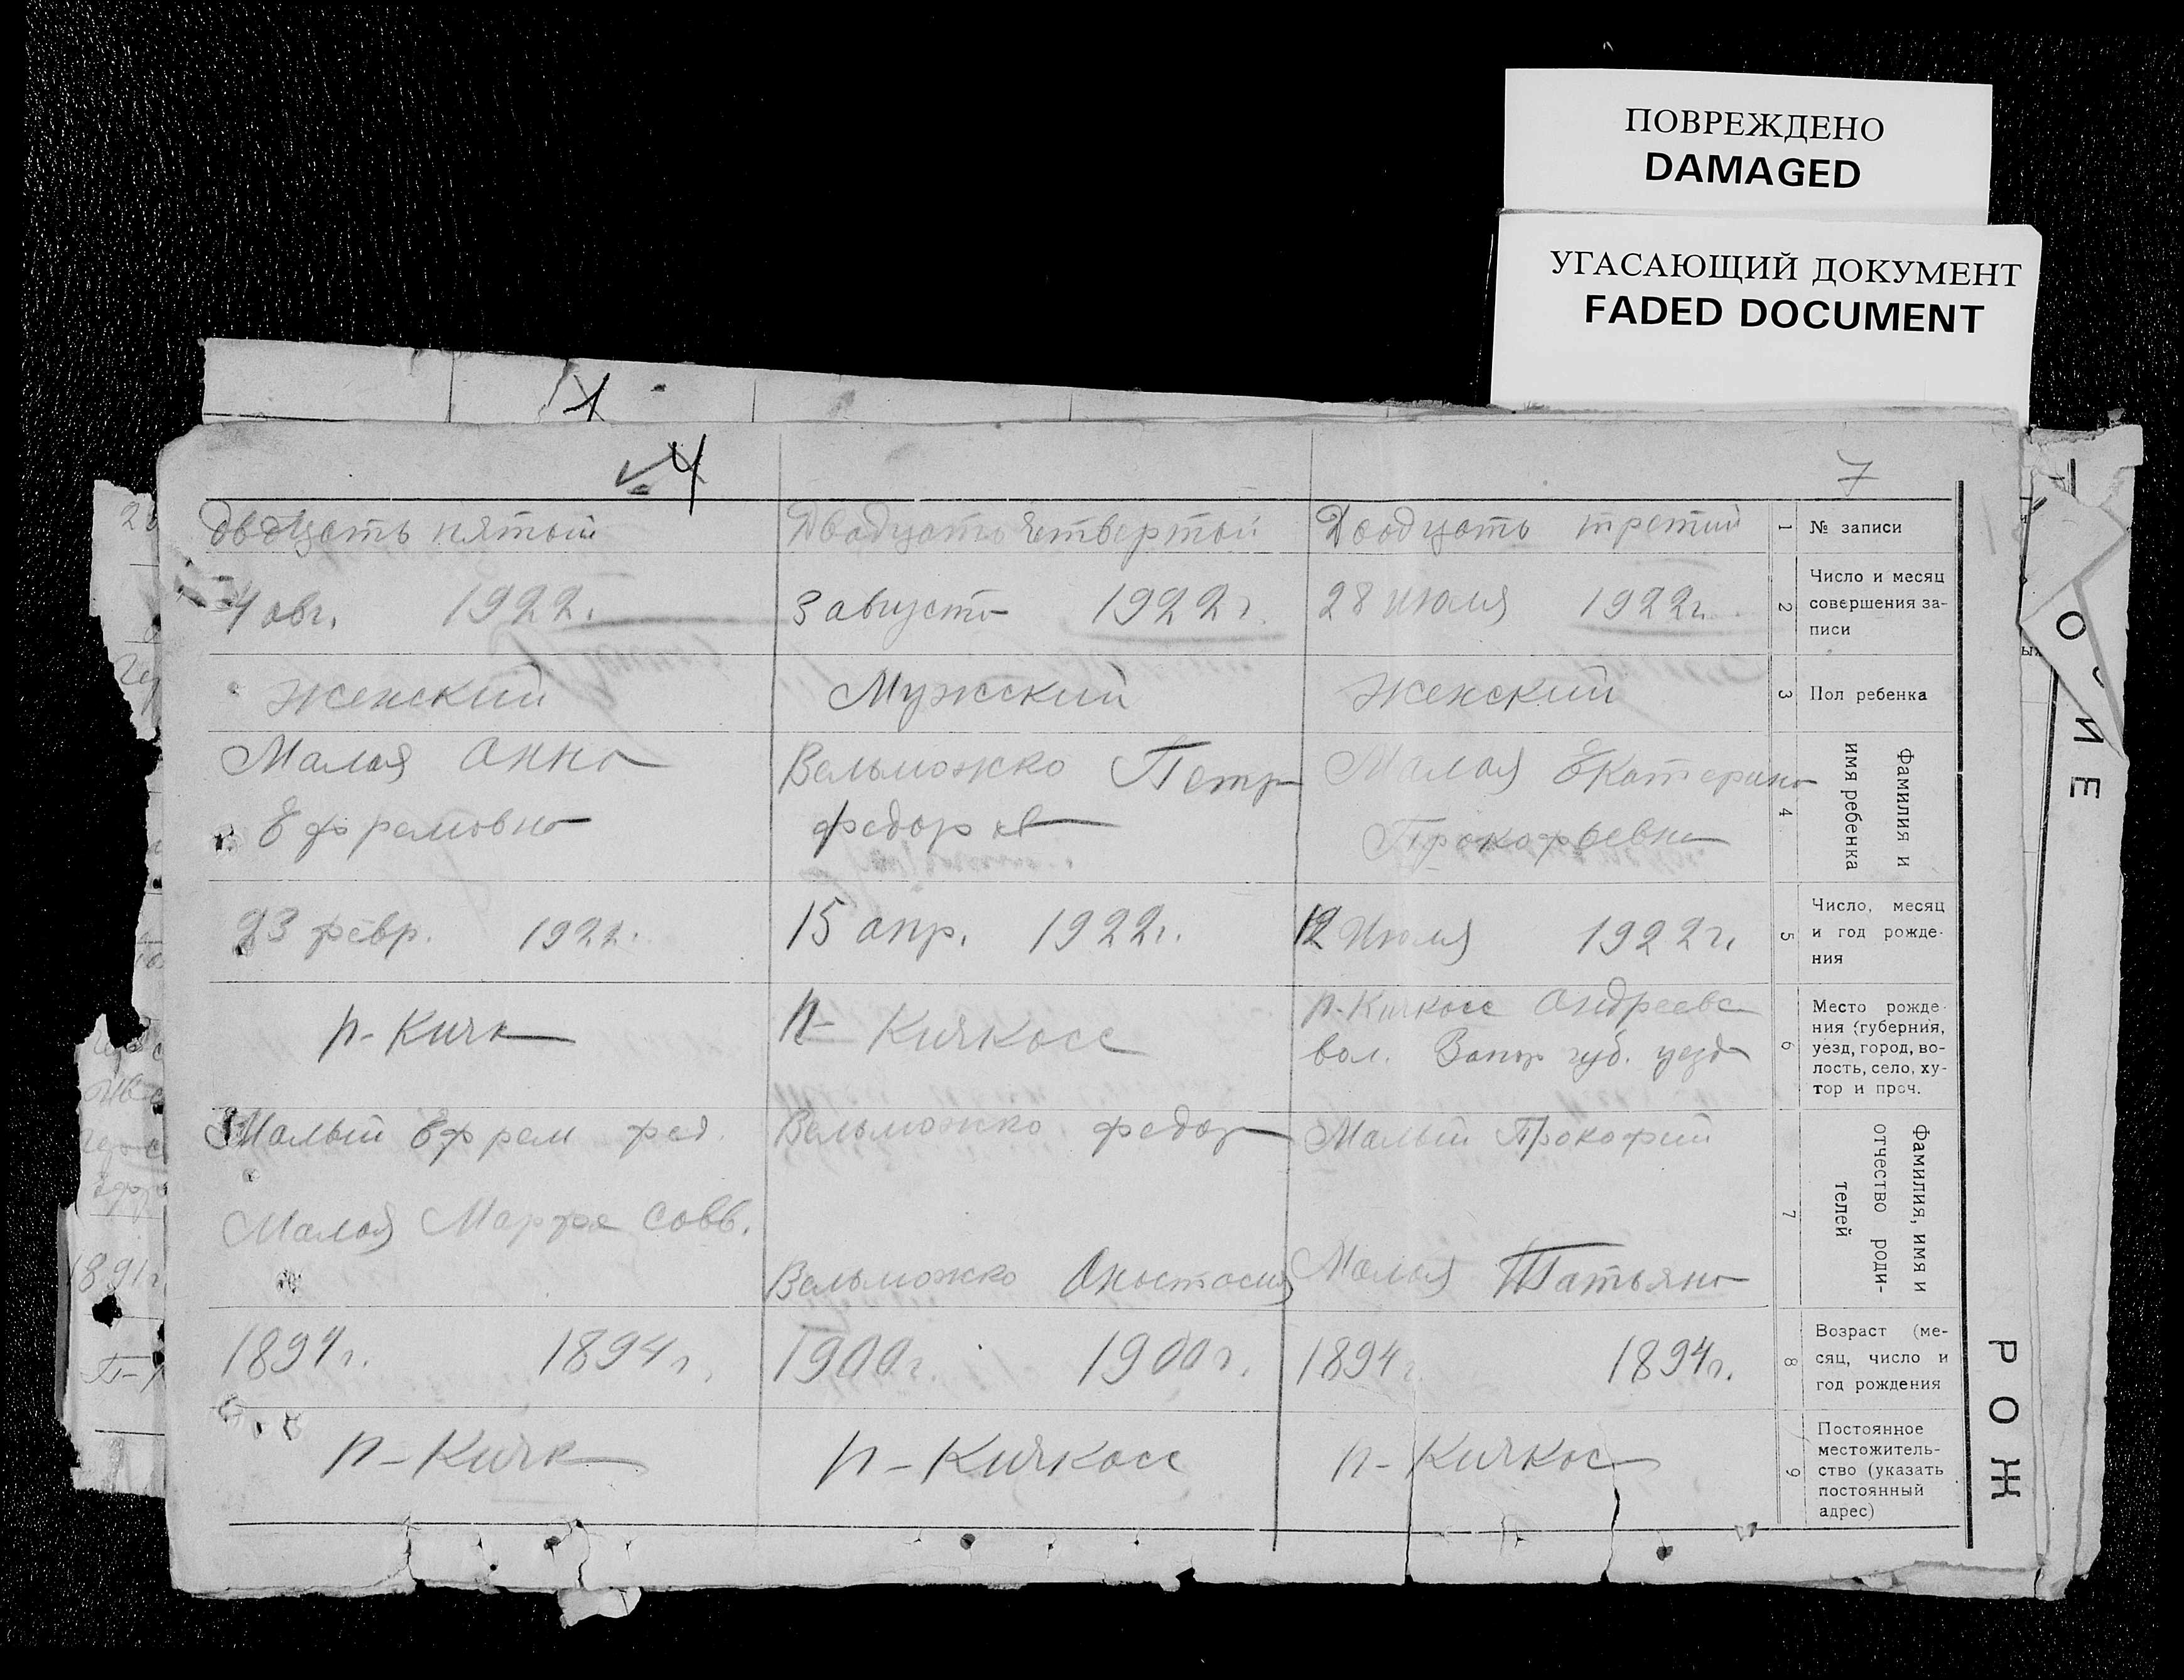 ПОВРЕЖДЕНО
DAMAGED
УГАСАЮЩИЙ ДОКУМЕНТ
FADED DOCUMENT
1
4
7
двадцать пятый
Двадцать четвертый
Двадцать третий
1
№ записи
4 авг. 1922.
3 августа 1922 г.
28 июля 1922 г.
2
Число и месяц
совершения за-
писи
Женский
Мужский
Женский
3
Пол ребенка
Малая Анна
Ефремовна
Вельможко Петр
Федоров
Малая Екатерина
Прокофьевна
4
Фамилия и
имя ребенка
23 февр. 1922.
15 апр. 1922 г.
12 Июля 1922 г.
5
Число, месяц
и год рожде-
ния
п-Кичк
п- Кичкасс
п-Кичкасс Андреевс
вол. Запор губ. уезда
6
Место рожде-
ния (губерния,
уезд, город, во-
лость, село, ху-
тор и проч.
Малый Ефрем фед.
Малая Марфа Савв.
Вельможко федор
Вельможко Анастасия
Малый Прокофий
Малая Татьяна
7
Фамилия, имя и
отчество роди-
телей
1894 г. 1894 г.
1900 г. 1900 г.
1894 г. 1894 г.
8
Возраст (ме-
сяц, число и
год рождения
п-Кичк
п-Кичкасс
п-Кичкас
9
Постоянное
местожитель-
ство (указать
постоянный
адрес)
РОЖ
ИЕ
1891 г